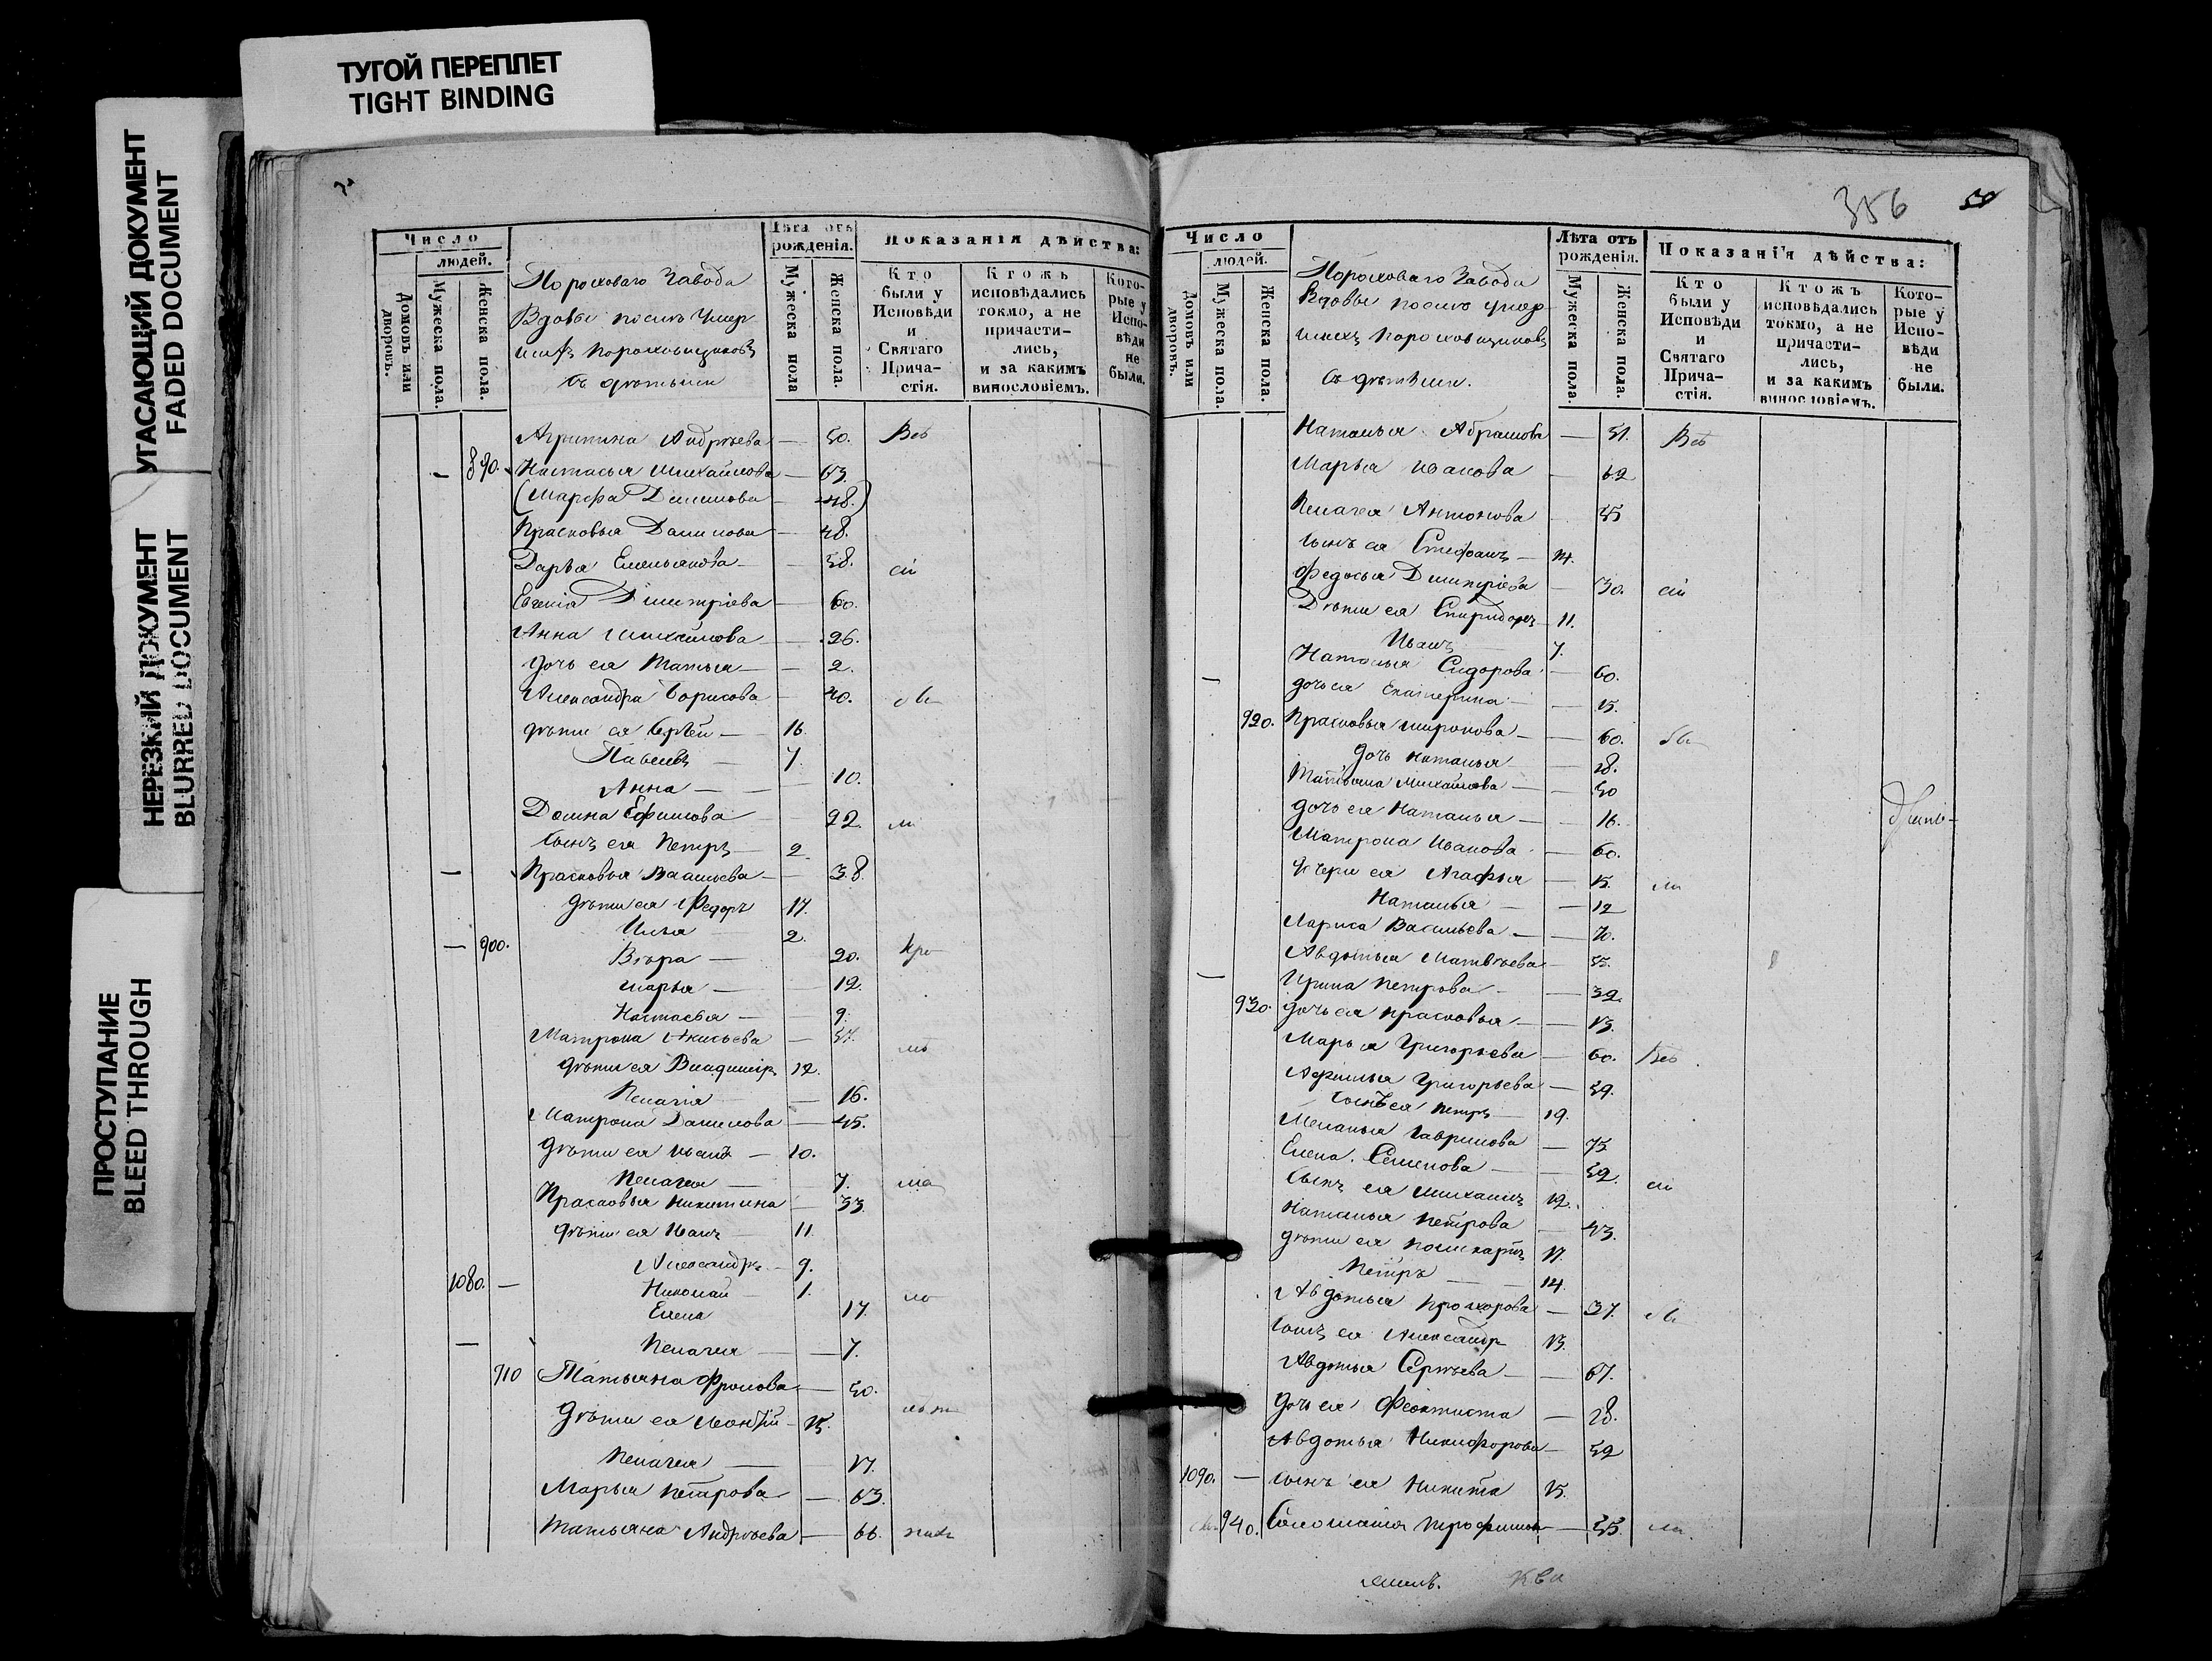 ТУГОЙ ПЕРЕПЛЕТ
TIGHT BINDING
УГАСАЮЩИЙ ДОКУМЕНТ
FADED DOCUMENT
НЕРЕЗКИЙ ДОКУМЕНТ
BLURRED DOCUMENT
ПРОСТУПАНИЕ
BLEED THROUGH
Число
людей.
Домовъ или дворовъ.
Мужеска пола.
Женска пола.
Пороховаго Завода
Вдовы послѣ умер
шихъ пороховщиковъ
съ дѣтьми
Лѣта отъ рожденія.
Мужеска пола
Женска пола.
Показанія дѣйства:
Кто были у Исповѣди и Святаго Прича-стія.
Ктожъ исповѣдались токмо, а не причасти-лись, и за какимъ винословіемъ.
Кото-рые у Испо-вѣди не были.
Агрипина Андрѣева — 50. Всѣ
— 890. Настасья Михайлова — 63.
(Марфа Данилова — 48.)
Прасковья Данилова — 48.
Дарья Емельянова — 58. сіи
Евгенія Дмитріева — 60.
Анна Михайлова — 26.
дочь ея Татья — 2.
Александра Борисова — 40.
дѣти ея Сергѣй — 16.
Павелъ — 7.
Анна — 10.
Домна Ефимова 22.
сынъ ея Петръ — 2.
— Прасковья Васильева — 38.
дѣти ея Федоръ 17.
Илья 2.
— 900. Вѣра — 20.
Марья — 12.
Настасья — 9.
Матрона Алисьева — 57.
дѣти ея Владиміръ 12.
Пелагія — 16.
Матрона Данилова — 45.
дѣти ея Иванъ — 10.
Пелагея — 7.
Прасковья Никитина — 33.
дѣти ея Иванъ — 11.
Александръ — 9.
1080. — Николай — 1.
Елена 17.
— Пелагея — 7.
910 Татьяна Фролова — 50.
дѣти ея Леонтій — 15.
Пелагея — 17.
Марья Петрова — 63.
Татьяна Андрѣева — 66.
356
Число
людей.
Домовъ или дворовъ.
Мужеска пола.
Женска пола.
Пороховаго Завода
Вдовы послѣ умер
шихъ пороховщиковъ
съ дѣтьми.
Лѣта отъ рожденія.
Мужеска пола.
Женска пола.
Показанія дѣйства:
Кто были у Исповѣди и Святаго Прича-стія.
Ктожъ исповѣдались токмо, а не причасти-лись, и за какимъ винословіемъ.
Кото-рые у Испо-вѣди не были.
Наталья Абрамова — 51. Всѣ
Марья Исакова — 62
Пелагея Антонова 55
сынъ ея Стефанъ — 14.
Федосья Дмитріева — 30. сіи
Дѣти ея Спиридонъ 11.
Иванъ 7.
— Наталья Сидорова — 60.
дочь ея Екатерина — 15.
920. Прасковья Миронова — 60.
дочь Наталья — 28.
Татьяна Михайлова — 50
дочь ея Наталья — 16.
Матрона Иванова — 60.
дчери ея Агафья — 15.
Наталья — 12
Лариса Васильева — 70.
Авдотья Матвѣева 55.
— Ирина Петрова — 32.
930. дочь ея Прасковья — 13.
Марья Григорьева — 60. Всѣ
Афимья Григорьева — 59.
сынъ ея Петръ — 19.
Меланья Гаврилова — 75
Елена Семенова — 52.
сынъ ея Михаилъ 12. сіи
Наталья Петрова — 43.
дѣти ея Поликарпъ 17.
Петръ — 14.
Авдотья Прохорова — 37.
сынъ ея Александръ 13.
Авдотья Сергѣева — 67.
дочь ея Феоктиста — 28.
Авдотья Никифорова — 52
1090. — сынъ ея Никита 15.
940. Соломанія Трофимова — 35.